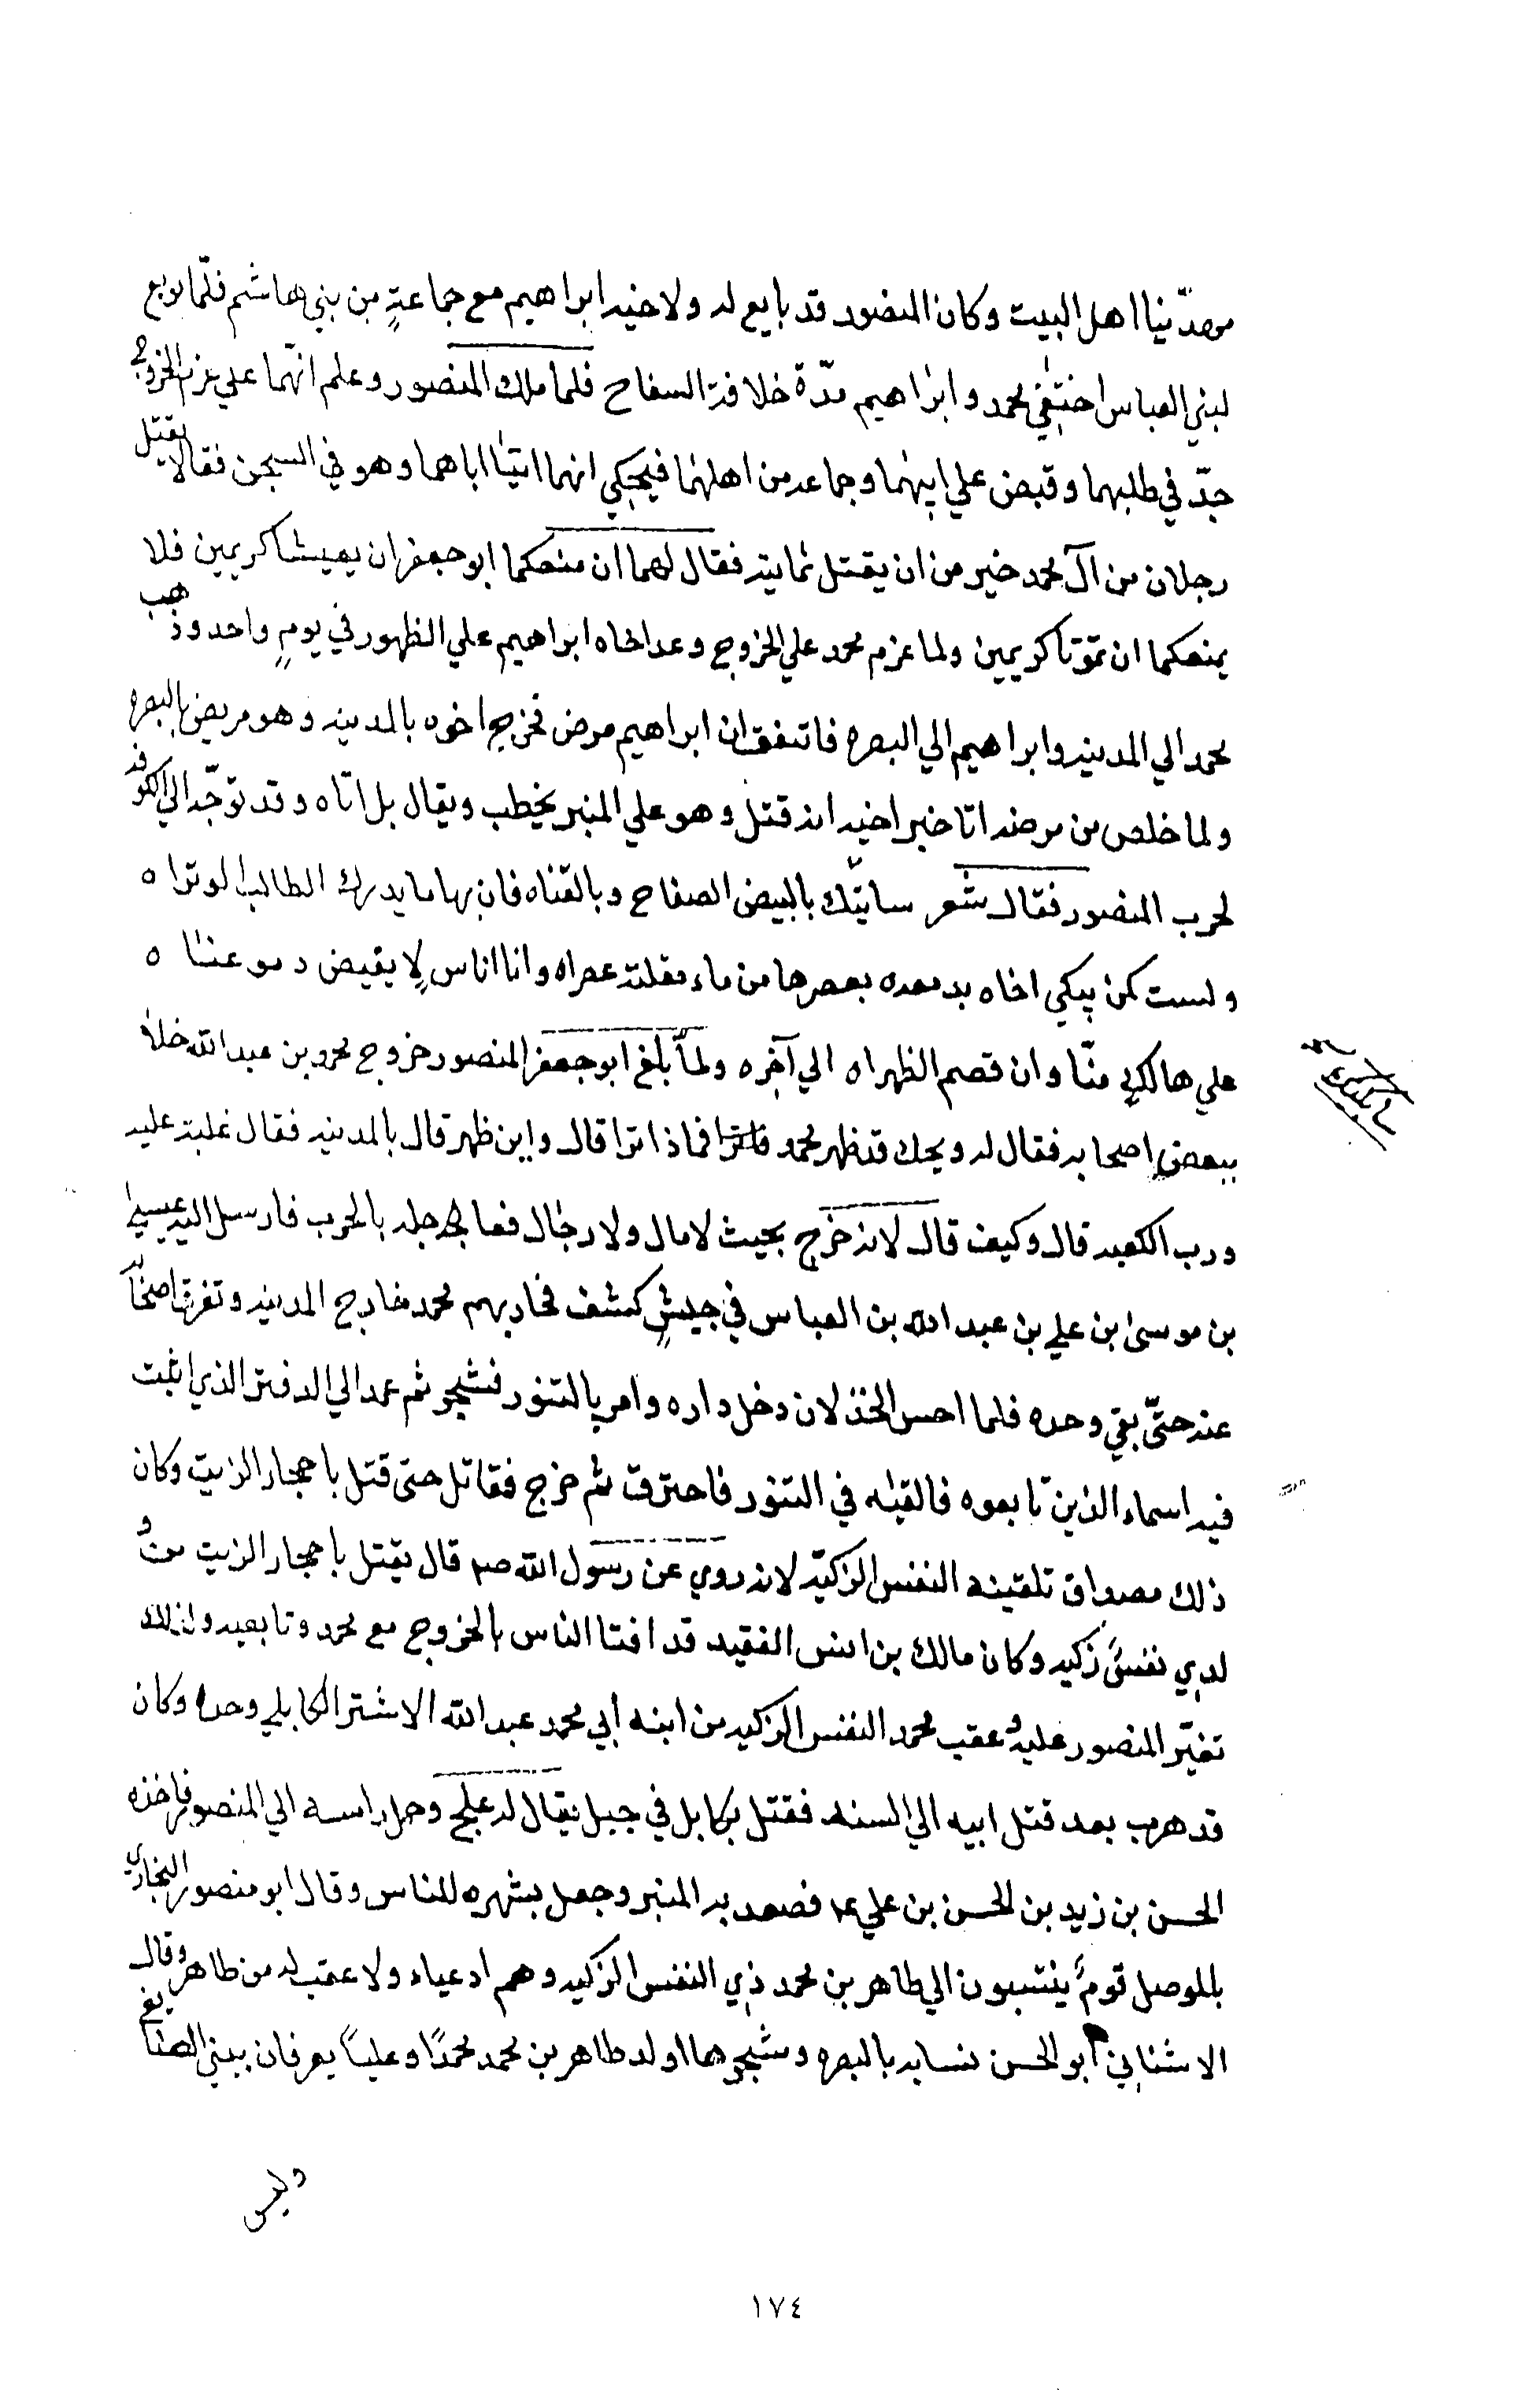 مهدّينا اهل البيت وكان المنصور قد بايع له ولاخيه ابراهيم مع جماعةٍ من بني هاشم فلمّا بويع
لبني العباس اختفي محمد وابراهيم مدّة خلافة السفاح فلما ملك المنصور وعلم انّهما علي عزم الخروج
جدّ في طلبهما وقبض علي ابيهما وجماعه من اهلهما فيحكي انهما اتيا اباهما وهو في السجن فقالا يقتل
رجلان من آل محمد خير من ان يقتل ثمانية فقال لهما ان منعكما ابو جعفر ان يعيشا كريمين فلا
يمنعكما ان تموتا كريمين ولما عزم محمد علي الخروج وعد اخاه ابراهيم علي الظهور في يومٍ واحد وذهب
محمد الي المدينه وابراهيم الي البصره فاتفق ان ابراهيم مرض فخرج اخوه بالمدينه وهو مريض بالبصره
ولما خلص من مرضه اتا خبر اخيه انه قتل وهو علي المنبر يخطب ويقال بل اتاه وقد توجّه الي الكوفه
لحرب المنصور فقال شعر سابكيك بالبيض الصفاح وبالقناه فان بها ما يدرك الطالب الوتراه
ولست كمن يبكي اخاه بدمعه يعصرها من ماء مقلته عصراه وانا اناس لا يفيض دموعنا ه
علي هالكٍ منّا وان قصم الظهراه الي آخره ولمّا بلغ ابو جعفر المنصور خروج محمد بن عبد الله خلا
ببعض اصحابه فقال له ويحك قد ظهر محمد فماذا ترا قال واين ظهر قال بالمدينه فقال غلبت عليه
ورب الكعبه قال وكيف قال لانه خرج بحيث لا مال ولا رجال فعاجله بالحرب فارسل اليه عيسي
بن موسى ابن علي بن عبد الله بن العباس في جيشٍ كشف فحاربهم محمد خارج المدينه وتفرق اصحابه
عنه حتّى بقي وحده فلما احس الخذلان دخل داره وامر بالتنور فشجر ثم عمد الي الدفتر الذي اثبت
فيه اسماء الذين تابعوه فالقيه في التنور فاحترق ثم خرج فقاتل حتى قتل باحجار الزيت وكان
ذلك مصداق تلقيبه النفس الزكيّة لانه روي عن رسول الله صم قال يقتل باحجار الزيت من وُ
لدي نفسٌ زكيه وكان مالك بن انس الفقيه قد افتا الناس بالخروج مع محمد وتابعيه ولذلك
تغيّر المنصور عليه وعقب محمد النفس الزكيه من ابنه ابي محمد عبد الله الاشتر الكابلي وحده وكان
قد هرب بعد قتل ابيه الي السند فقتل بكابل في جبل يقال له علج وحمل راسه الي المنصور فاخذه
الحسن بن زيد بن الحسن بن علي ع فصعد به المنبر وجعل يشهره للناس وقال ابو منصور البخاري
بالموصل قومٌ ينتسبون الي طاهر بن محمد ذي النفس الزكيه وهم ادعياء ولا عقب له من طاهر وقال
الاشناني ابو الحسن نسابه بالبصره ومشجرها اولد طاهر بن محمد محمدًا وعلياً يعرفان ببني الصنايغ
وليس
١٧٤